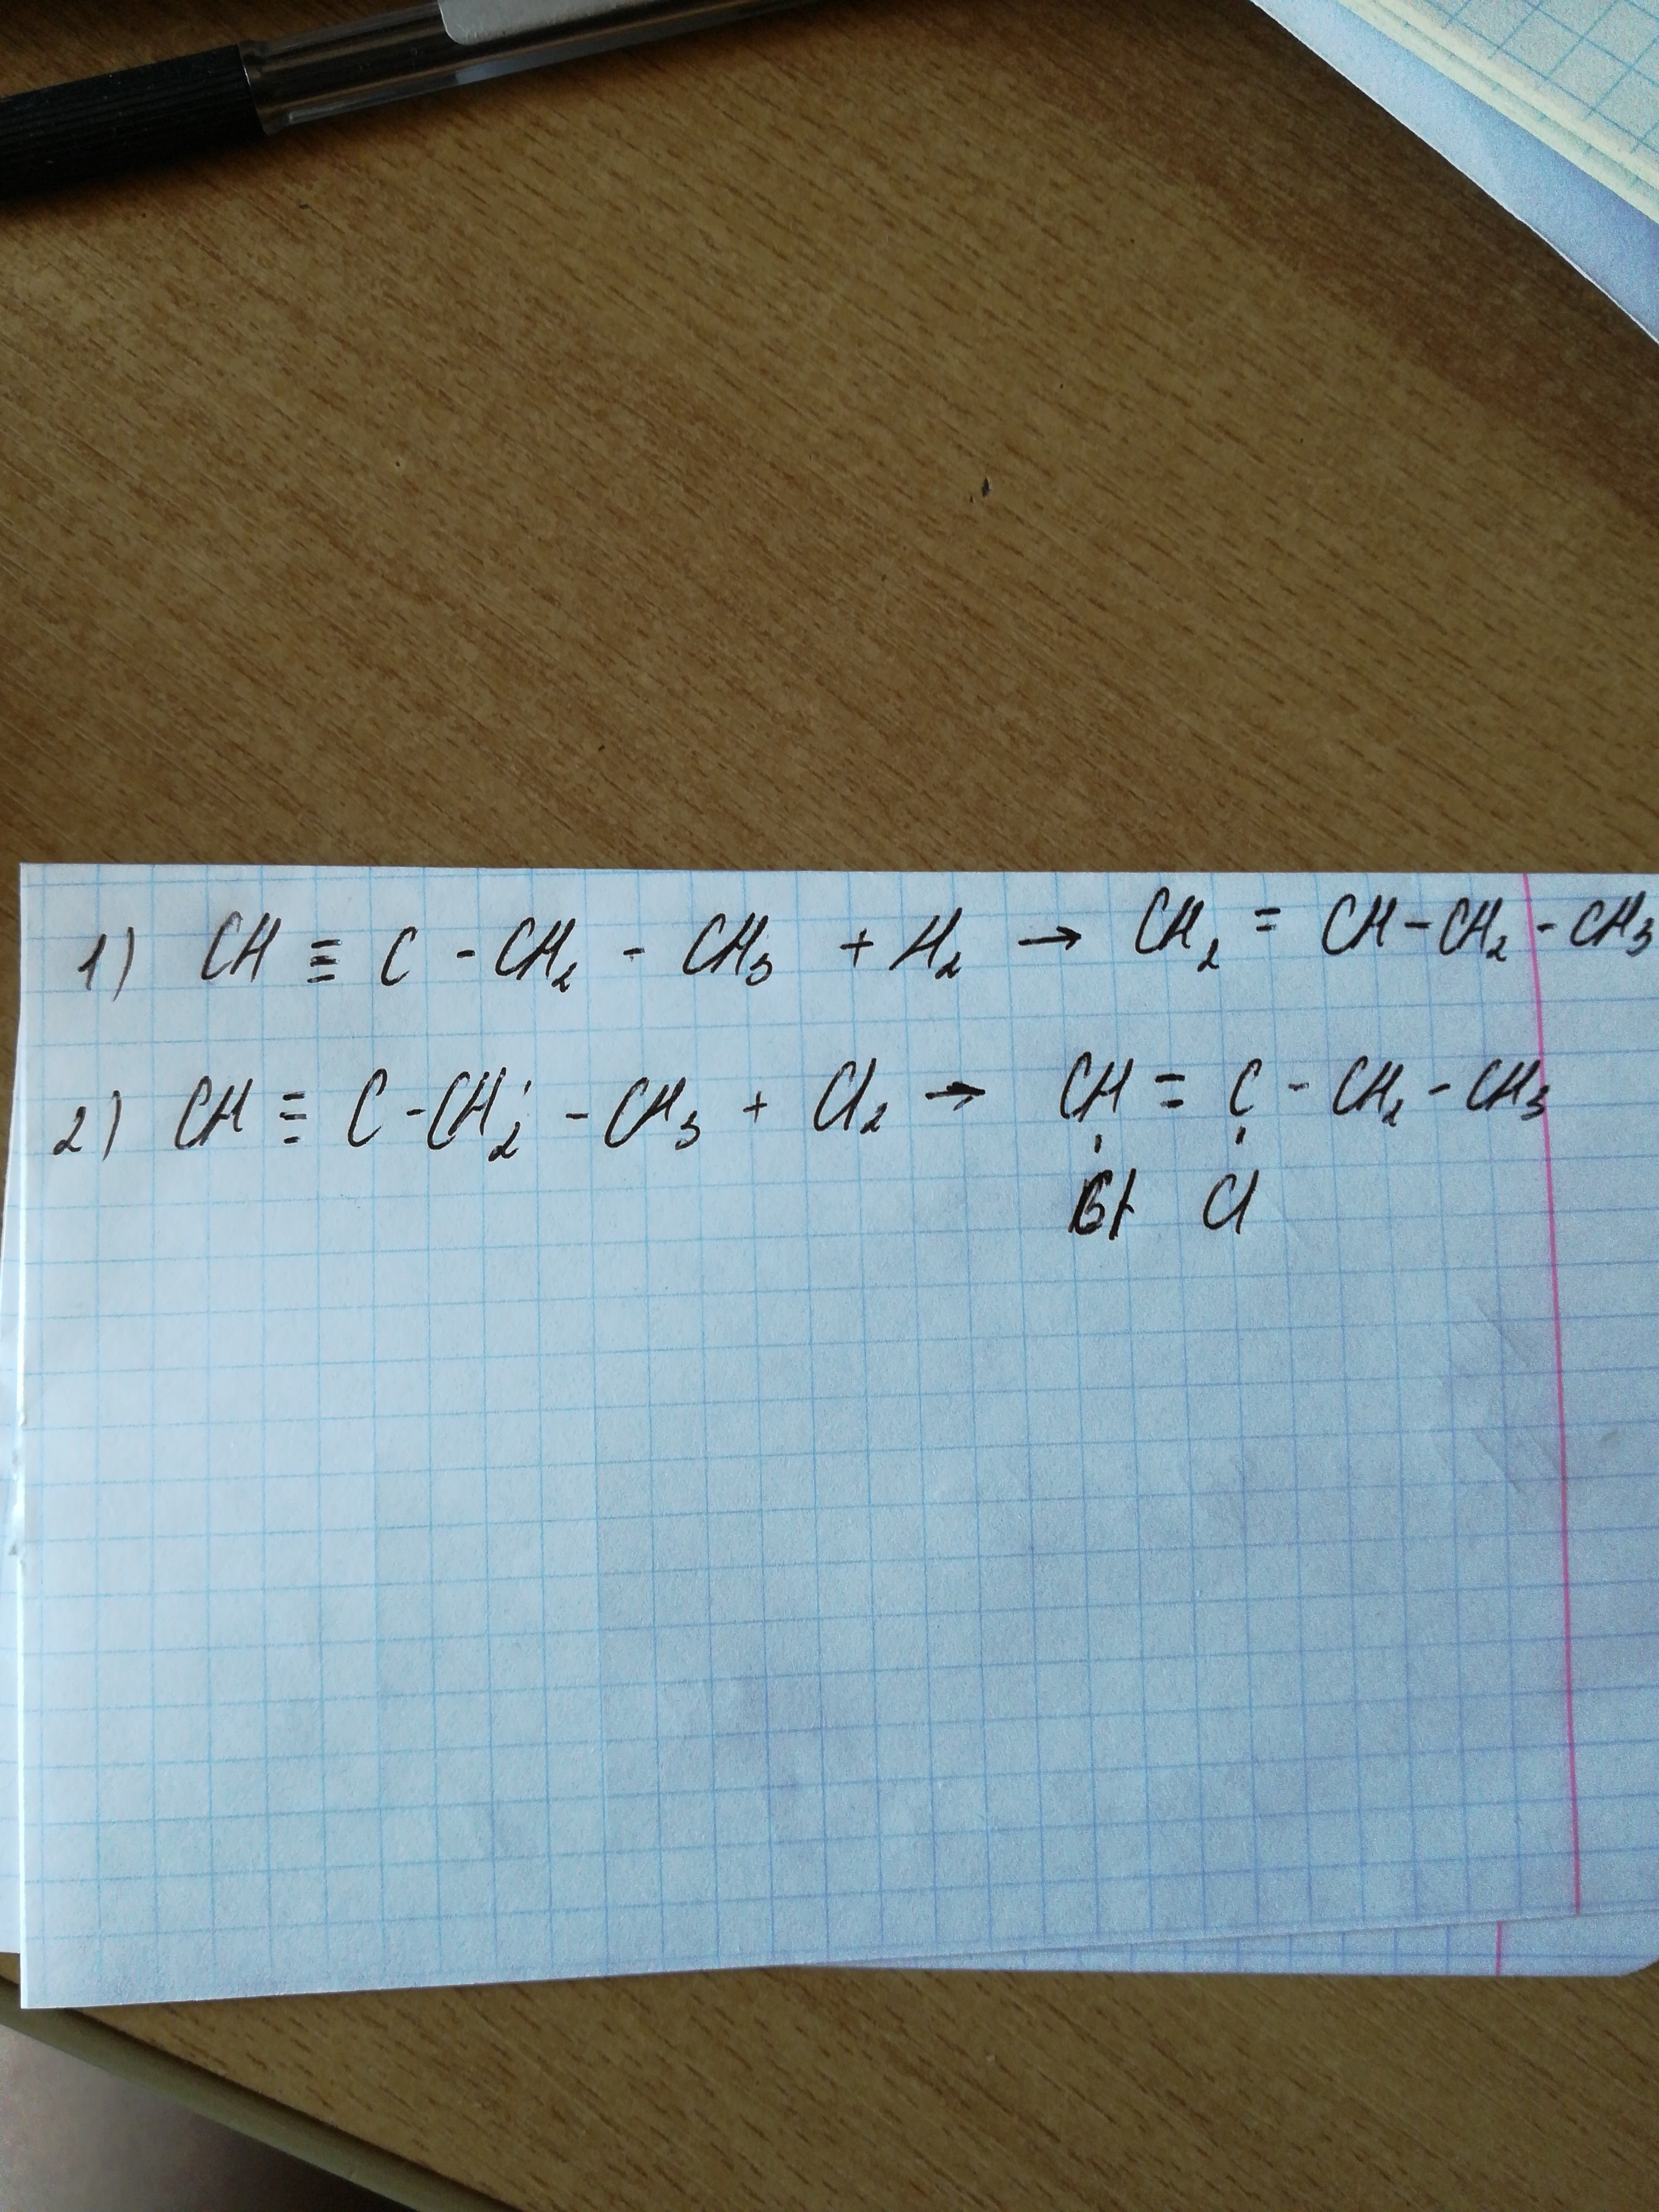 1) CH ≡ C - CH₂ - CH₃ + H₂ → CH₂ = CH - CH₂ - CH₃
2) CH ≡ C - CH₂ - CH₃ + Cl₂ → CH = C - CH₂ - CH₃
Cl